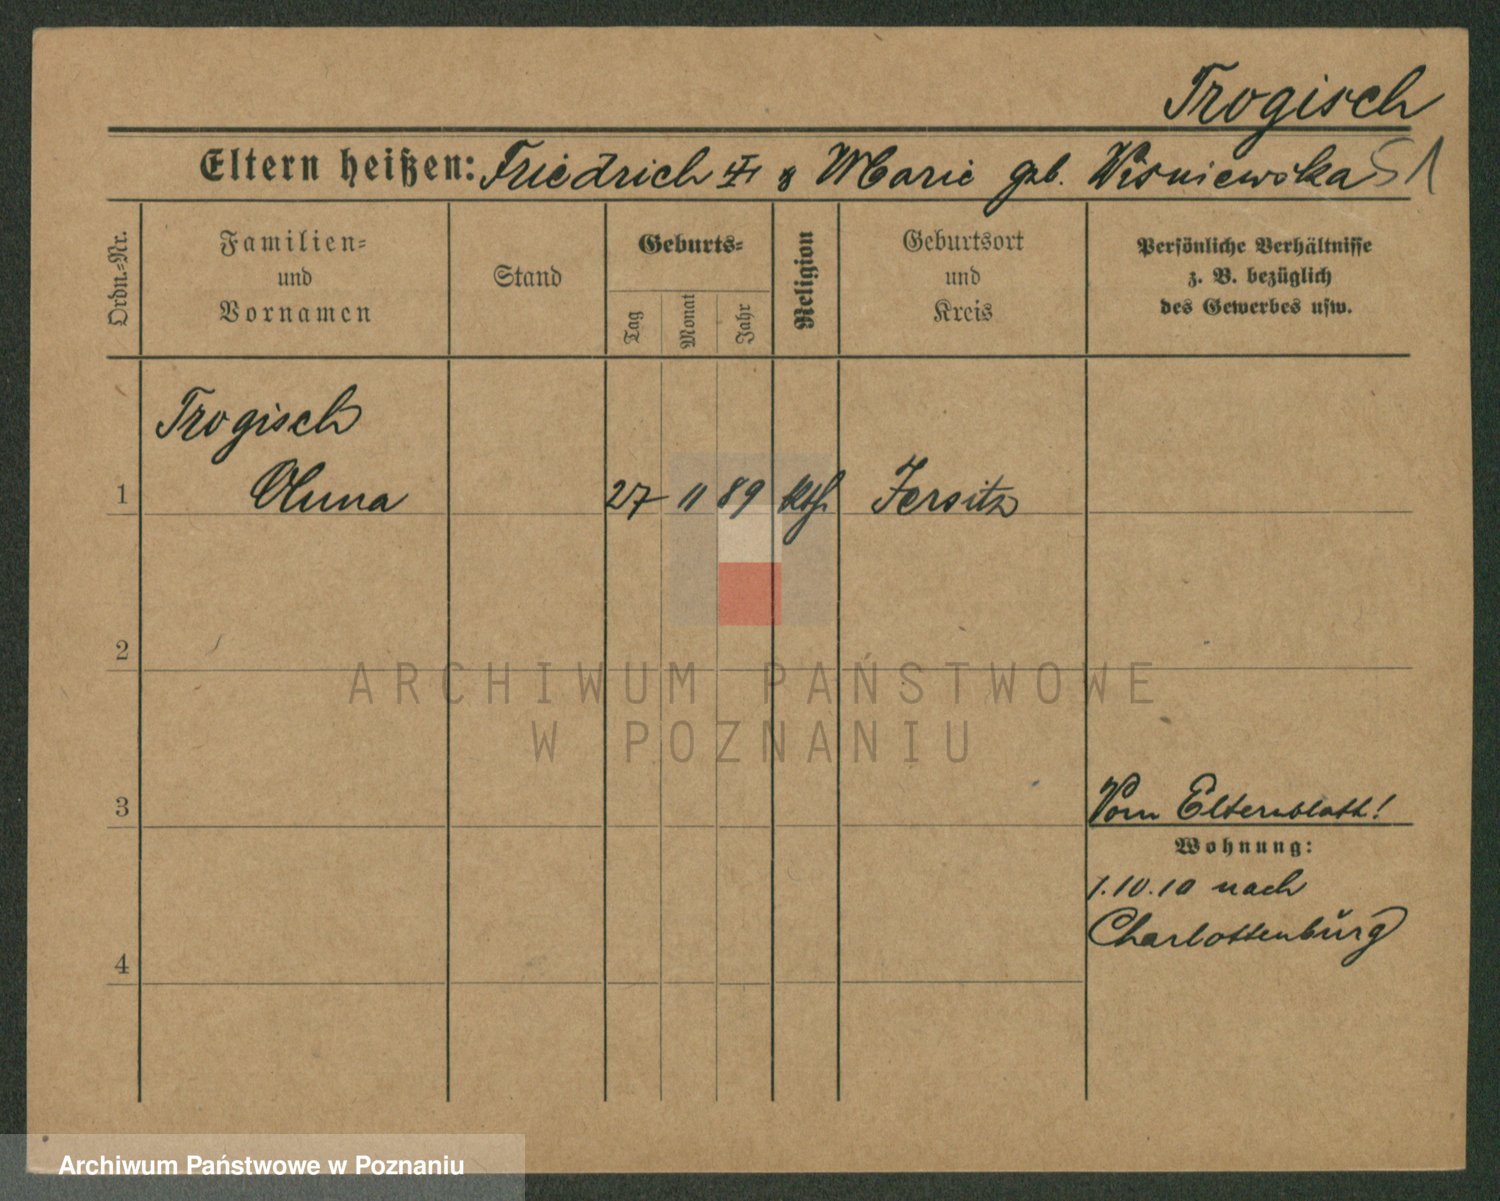 Trogisch
Eltern heißen: Friedrich & Marie geb. Wisniewska 51
Ordn.-Nr.
Familien-
und
Vornamen
Stand
Geburts-
Tag
Monat
Jahr
Religion
Geburtsort
und
Kreis
Persönliche Verhältnisse
z. B. bezüglich
des Gewerbes usw.
Trogisch
1 Anna 27 11 89 kth. Jersitz
2
ARCHIWUM PAŃSTWOWE
W POZNANIU
3 Vom Elternblatt!
Wohnung:
1.10.10 nach
Charlottenburg
4
Archiwum Państwowe w Poznaniu